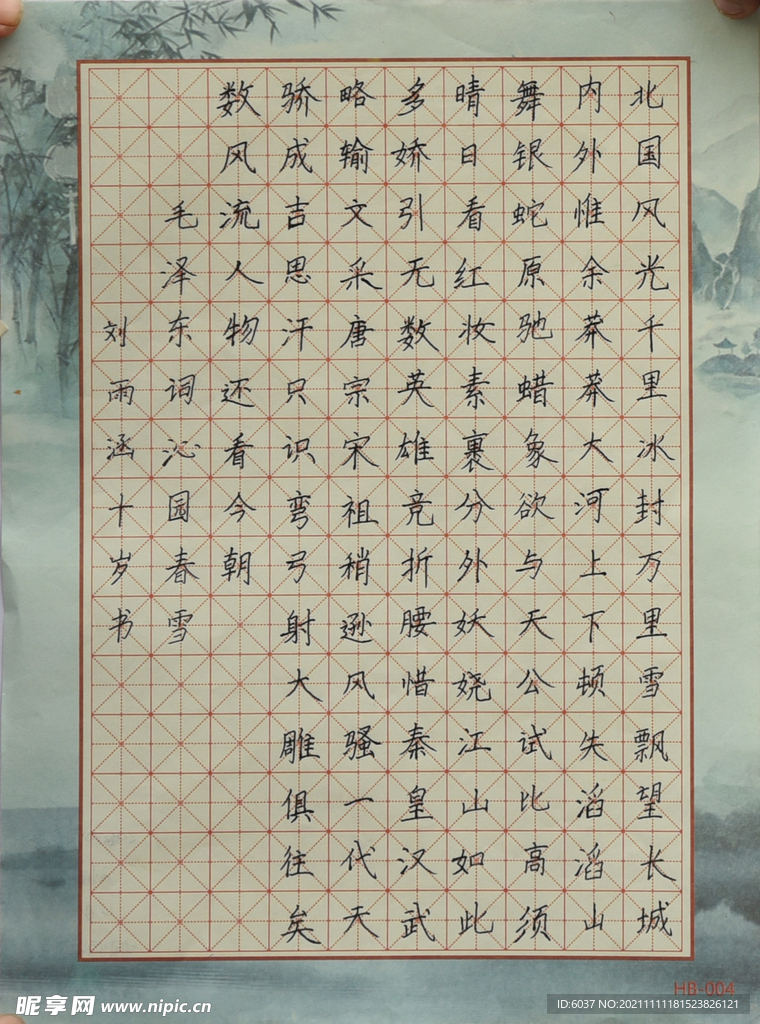 北国风光千里冰封万里雪飘望长城
内外惟余莽莽大河上下顿失滔滔山
舞银蛇原驰蜡象欲与天公试比高须
晴日看红妆素裹分外妖娆江山如此
多娇引无数英雄竞折腰惜秦皇汉武
略输文采唐宗宋祖稍逊风骚一代天
骄成吉思汗只识弯弓射大雕俱往矣
数风流人物还看今朝
毛泽东词沁园春雪
刘雨涵十岁书
HB-004
昵享网 www.nipic.cn
ID:6037 NO:20211111181523826121